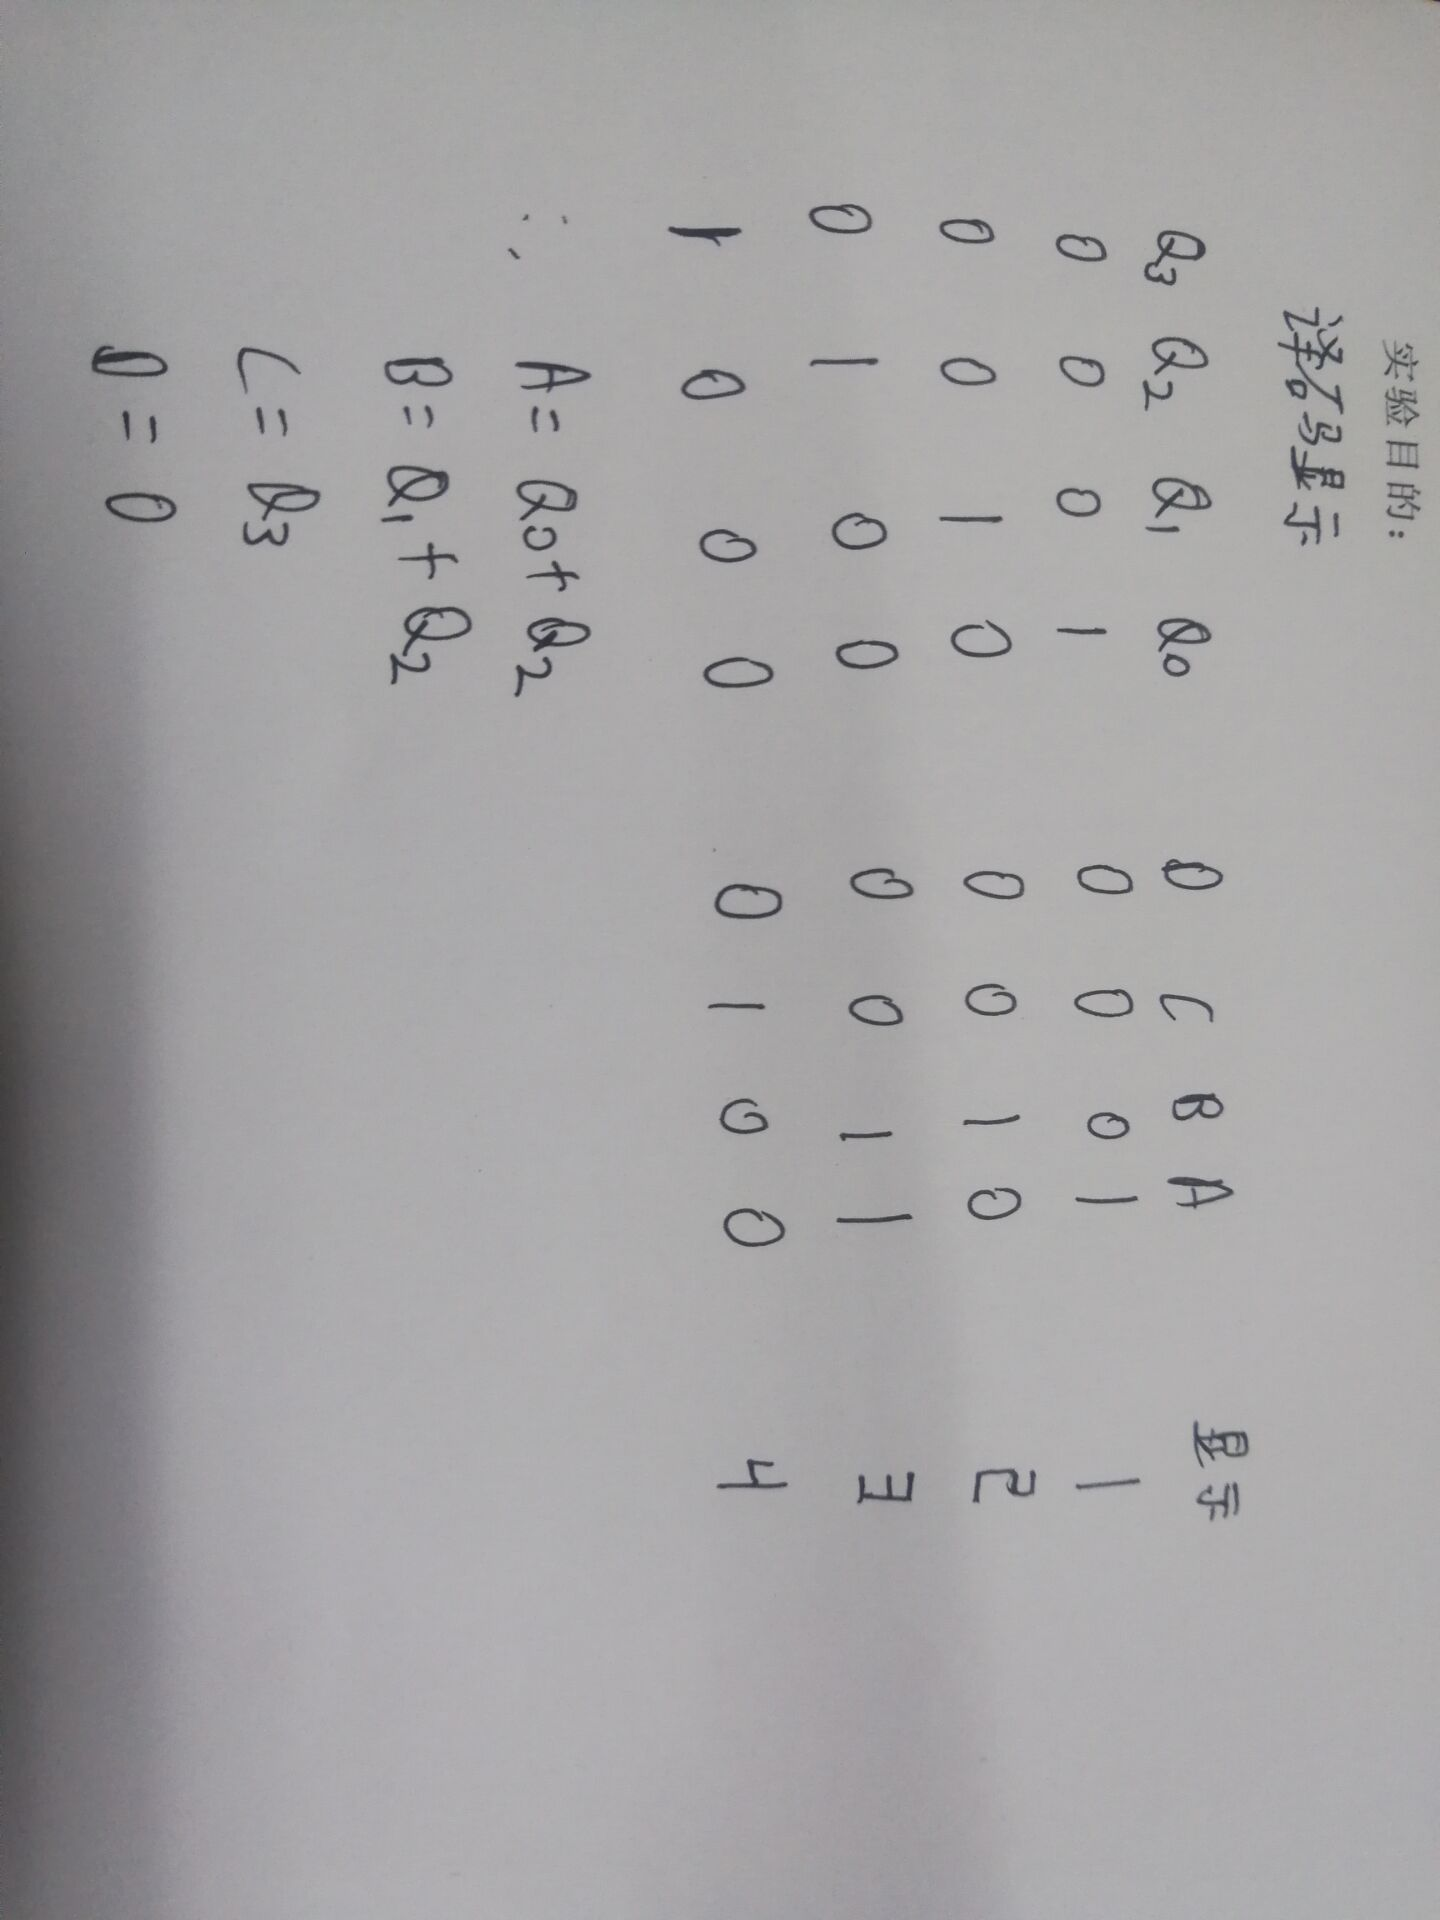 实验目的:
译码显示
Q3 Q2 Q1 Q0 D C B A 显示
0 0 0 1 0 0 0 1 1
0 0 1 0 0 0 1 0 2
0 1 0 0 0 0 1 1 3
1 0 0 0 0 1 0 0 4
∴ A = Q0 + Q2
B = Q1 + Q2
C = Q3
D = 0